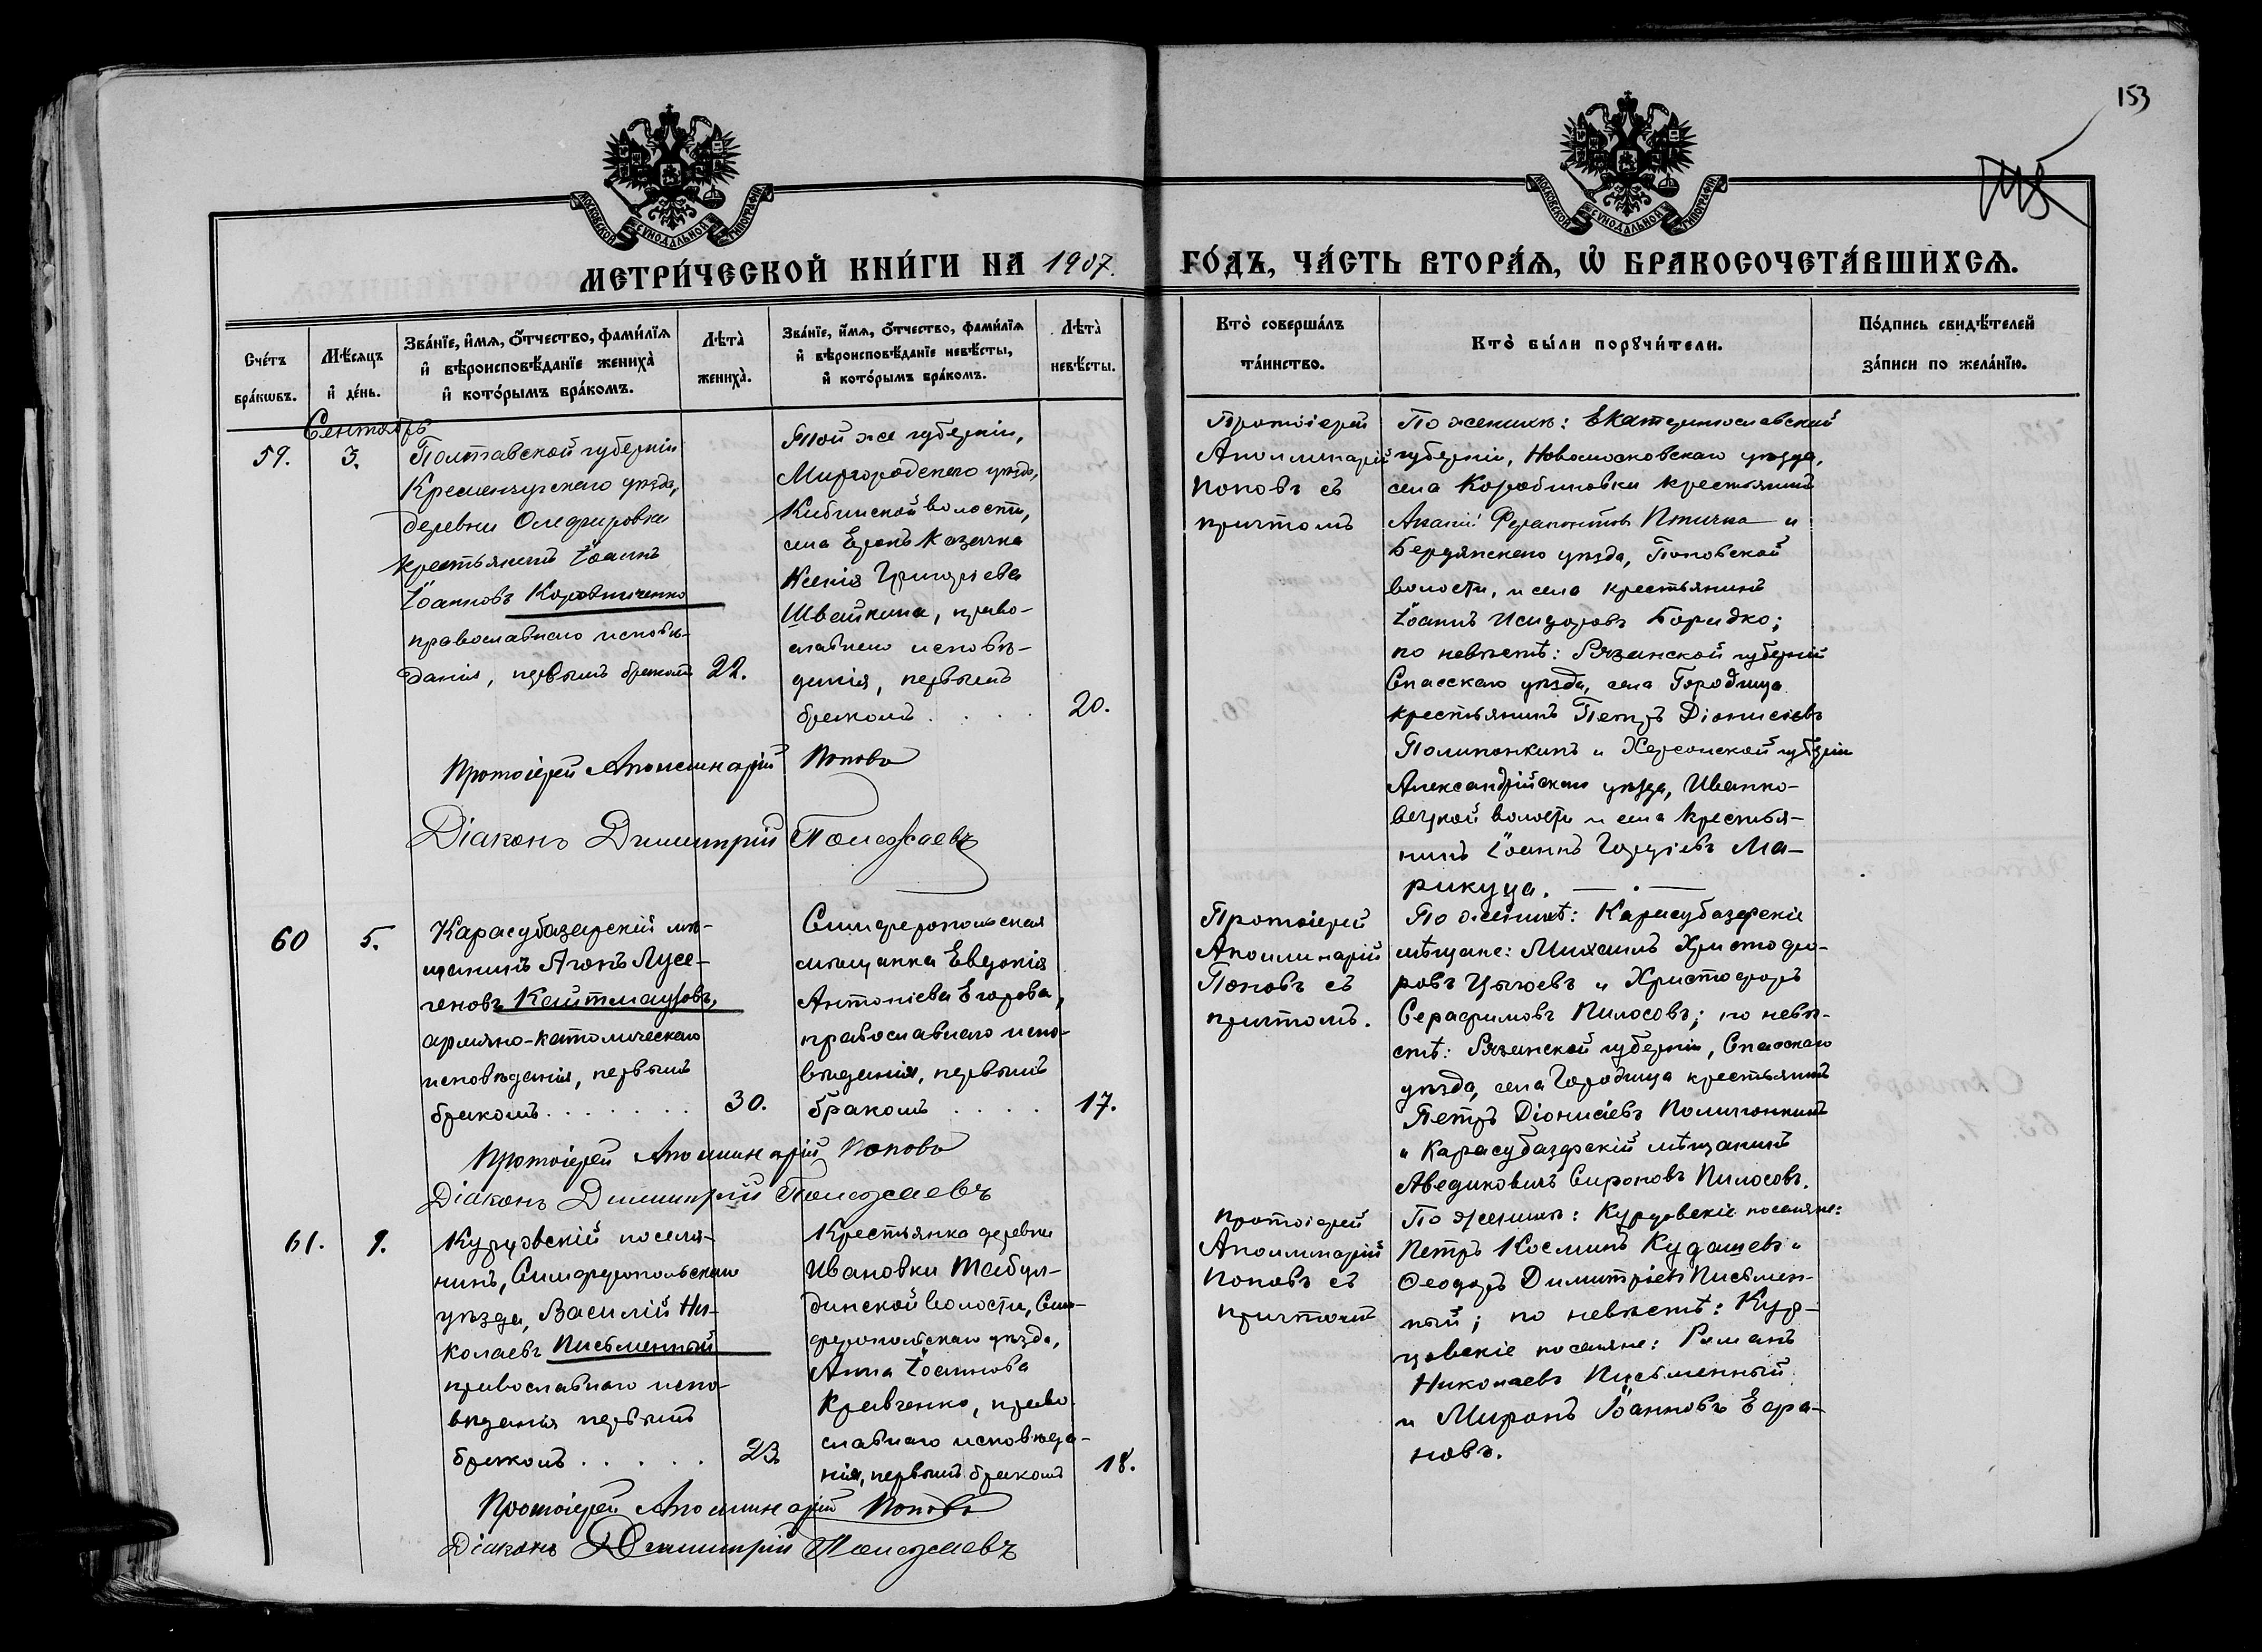 153
МОСКОВСКОЙ СѴНОДАЛЬНОЙ ТИПОГРАФІИ
МОСКОВСКОЙ СѴНОДАЛЬНОЙ ТИПОГРАФІИ
МЕТРИ́ЧЕСКОЙ КНИ́ГИ НА 1907. ГО́ДЪ, ЧА́СТЬ ВТОРА́Ѧ, Ѡ҆ БРАКОСОЧЕТА́ВШИХСѦ.
Сче́тъ
бра́кѡвъ.
Мѣ́сѧцъ
и҆ де́нь.
Зва́нїе, и҆́мѧ, ѻ҆́тчество, фами́лїѧ
и҆ вѣроисповѣ́данїе жениха̀
и҆ кото́рымъ бра́комъ.
Лѣта̀
жениха̀.
Зва́нїе, и҆́мѧ, ѻ҆́тчество, фами́лїѧ
и҆ вѣроисповѣ́данїе невѣ́сты,
и҆ кото́рымъ бра́комъ.
Лѣта̀
невѣ́сты.
Кто̀ соверша́лъ
та́инство.
Кто̀ бы́ли порꙋчи́тели.
По́дпись свидѣ́телей
за́писи по жела́нїю.
Сентябрь
59.
3.
Полтавской губерніи
Кременчугскаго уѣзда,
деревни Олефировки
крестьянинъ Іоаннъ
Іоанновъ Коровниченко
православнаго исповѣ-
данія, первымъ бракомъ
22.
Той же губерніи,
Миргородскаго уѣзда,
Кибинской волости,
села казачка
Ксенія Григоріева
Швайкина, право-
славнаго исповѣ-
данія, первымъ
бракомъ . . . .
20.
Протоіерей
Аполлинарій
Поповъ съ
причтомъ
По женихѣ: Екатеринославской
губерніи, Новомосковскаго уѣзда,
села крестьянинъ
Ферапонтовъ Птичка и
Бердянскаго уѣзда, Поповской
волости, и села крестьянинъ
Іоаннъ Исидоровъ Боридко;
по невѣстѣ: Рязанской губерніи
Спасскаго уѣзда, села Городища
крестьянинъ Петръ Діонисіевъ
и Херсонской губерніи
Александрійскаго уѣзда, Иванко-
вецкой волости и села крестья-
нинъ Іоаннъ Гордіевъ Ма-
рикуца.
Протоіерей Аполлинарій Поповъ
Діаконъ Димитрій Полежаевъ
60
5.
Карасубазарскій мѣ-
щанинъ Агопъ Лусе-
геновъ Кайтмазовъ,
армяно-католическаго
исповѣданія, первымъ
бракомъ . . . . . . .
30.
Симферопольская
мѣщанка Евдокія
Антоніева Егорова,
православнаго испо-
вѣданія, первымъ
бракомъ . . . .
17.
Протоіерей
Аполлинарій
Поповъ съ
причтомъ.
По женихѣ: Карасубазарскіе
мѣщане: Михаилъ Христофо-
ровъ и Христофоръ
Серафимовъ Пилосовъ; по невѣ-
стѣ: Рязанской губерніи, Спасскаго
уѣзда, села Городища крестьянинъ
Петръ Діонисіевъ
и Карасубазарскій мѣщанинъ
Аведиковичъ Пилосовъ.
Протоіерей Аполлинарій Поповъ
Діаконъ Димитрій Полежаевъ
61.
9.
Курцовскій поселя-
нинъ, Симферопольскаго
уѣзда, Василій Ни-
колаевъ Письменный
православнаго испо-
вѣданія первымъ
бракомъ . . . . .
23
Крестьянка деревни
Ивановки Табул-
динской волости, Сим-
феропольскаго уѣзда,
Анна Іоаннова
Кравченко, право-
славнаго исповѣда-
нія, первымъ бракомъ
18.
Протоіерей
Аполлинарій
Поповъ съ
причтомъ
По женихѣ: Курцовскіе поселяне:
Петръ Косминъ Кудашевъ и
Ѳеодоръ Димитріевъ Письмен-
ный; по невѣстѣ: Кур-
цовскіе поселяне: Романъ
Николаевъ Письменный
и Миронъ Іоанновъ Бара-
новъ.
Протоіерей Аполлинарій Поповъ
Діаконъ Димитрій Полежаевъ